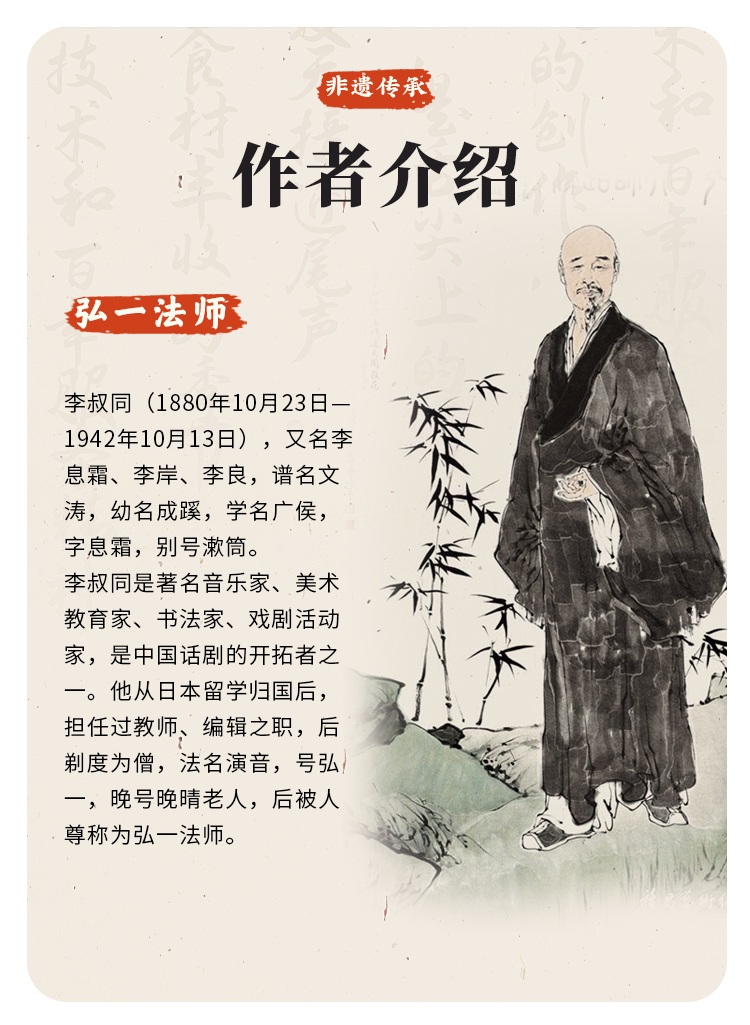 非遗传承
作者介绍
弘一法师
李叔同（1880年10月23日—
1942年10月13日），又名李
息霜、李岸、李良，谱名文
涛，幼名成蹊，学名广侯，
字息霜，别号漱筒。
李叔同是著名音乐家、美术
教育家、书法家、戏剧活动
家，是中国话剧的开拓者之
一。他从日本留学归国后，
担任过教师、编辑之职，后
剃度为僧，法名演音，号弘
一，晚号晚晴老人，后被人
尊称为弘一法师。